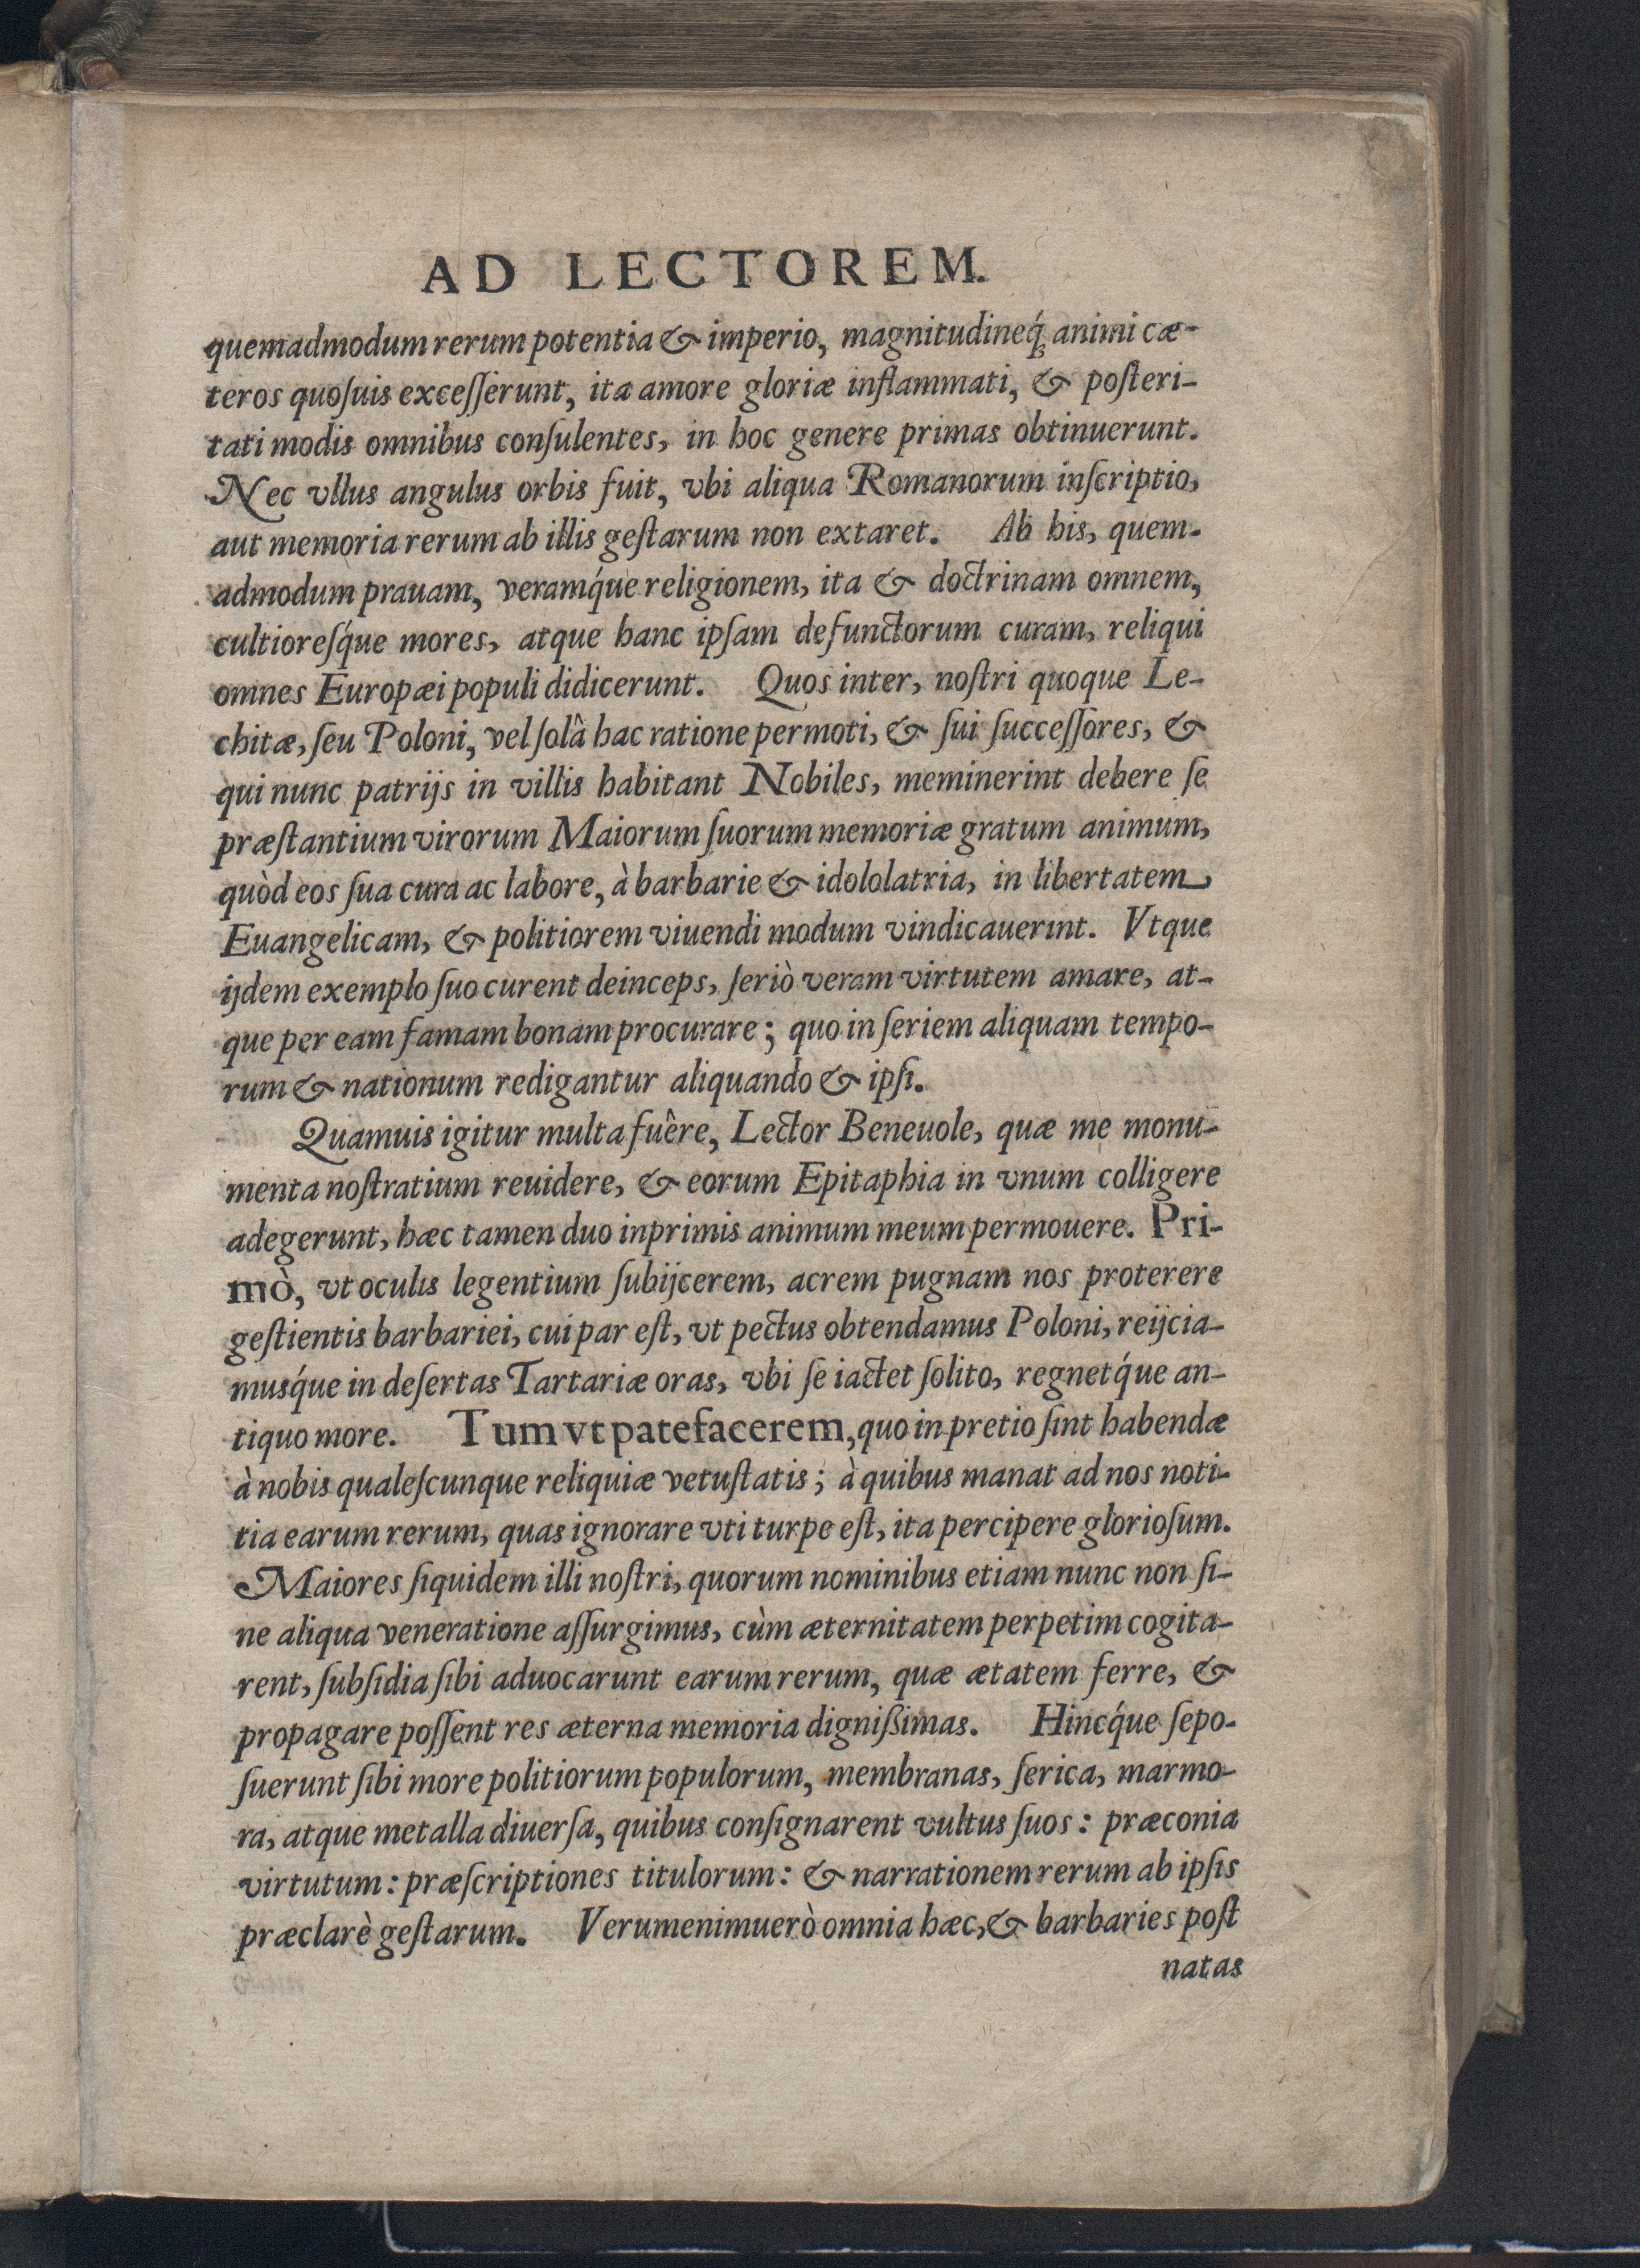 AD LECTOREM.
quemadmodum rerum potentia & imperio, magnitudineq́; animi cæ-
teros quoſuis exceſſerunt, ita amore gloriæ inflammati, & poſteri-
tati modis omnibus conſulentes, in hoc genere primas obtinuerunt.
Nec vllus angulus orbis fuit, vbi aliqua Romanorum inſcriptio,
aut memoria rerum ab illis geſtarum non extaret. Ab his, quem-
admodum prauam, veramq́ue religionem, ita & doctrinam omnem,
cultioreſq́ue mores, atque hanc ipſam defunctorum curam, reliqui
omnes Europæi populi didicerunt. Quos inter, noſtri quoque Le-
chitæ, ſeu Poloni, vel ſolâ hac ratione permoti, & ſui ſucceſſores, &
qui nunc patrijs in villis habitant Nobiles, meminerint debere ſe
præſtantium virorum Maiorum ſuorum memoriæ gratum animum,
quòd eos ſua cura ac labore, à barbarie & idololatria, in libertatem
Euangelicam, & politiorem viuendi modum vindicauerint. Vtque
ijdem exemplo ſuo curent deinceps, ſeriò veram virtutem amare, at-
que per eam famam bonam procurare; quo in ſeriem aliquam tempo-
rum & nationum redigantur aliquando & ipſi.
Quamuis igitur multa fuêre, Lector Beneuole, quæ me monu-
menta noſtratium reuidere, & eorum Epitaphia in vnum colligere
adegerunt, hæc tamen duo inprimis animum meum permouere. Pri-
mò, vt oculis legentium ſubijcerem, acrem pugnam nos proterere
geſtientis barbariei, cui par eſt, vt pectus obtendamus Poloni, reijcia-
musq́ue in deſertas Tartariæ oras, vbi ſe iactet ſolito, regnetq́ue an-
tiquo more. Tum vt patefacerem, quo in pretio ſint habendæ
à nobis qualeſcunque reliquiæ vetuſtatis; à quibus manat ad nos noti-
tia earum rerum, quas ignorare vti turpe eſt, ita percipere glorioſum.
Maiores ſiquidem illi noſtri, quorum nominibus etiam nunc non ſi-
ne aliqua veneratione aſſurgimus, cùm æternitatem perpetim cogita-
rent, ſubſidia ſibi aduocarunt earum rerum, quæ ætatem ferre, &
propagare poſſent res æterna memoria dignißimas. Hincq́ue ſepo-
ſuerunt ſibi more politiorum populorum, membranas, ſerica, marmo-
ra, atque metalla diuerſa, quibus conſignarent vultus ſuos: præconia
virtutum: præſcriptiones titulorum: & narrationem rerum ab ipſis
præclarè geſtarum. Verumenimuerò omnia hæc, & barbaries poſt
natas